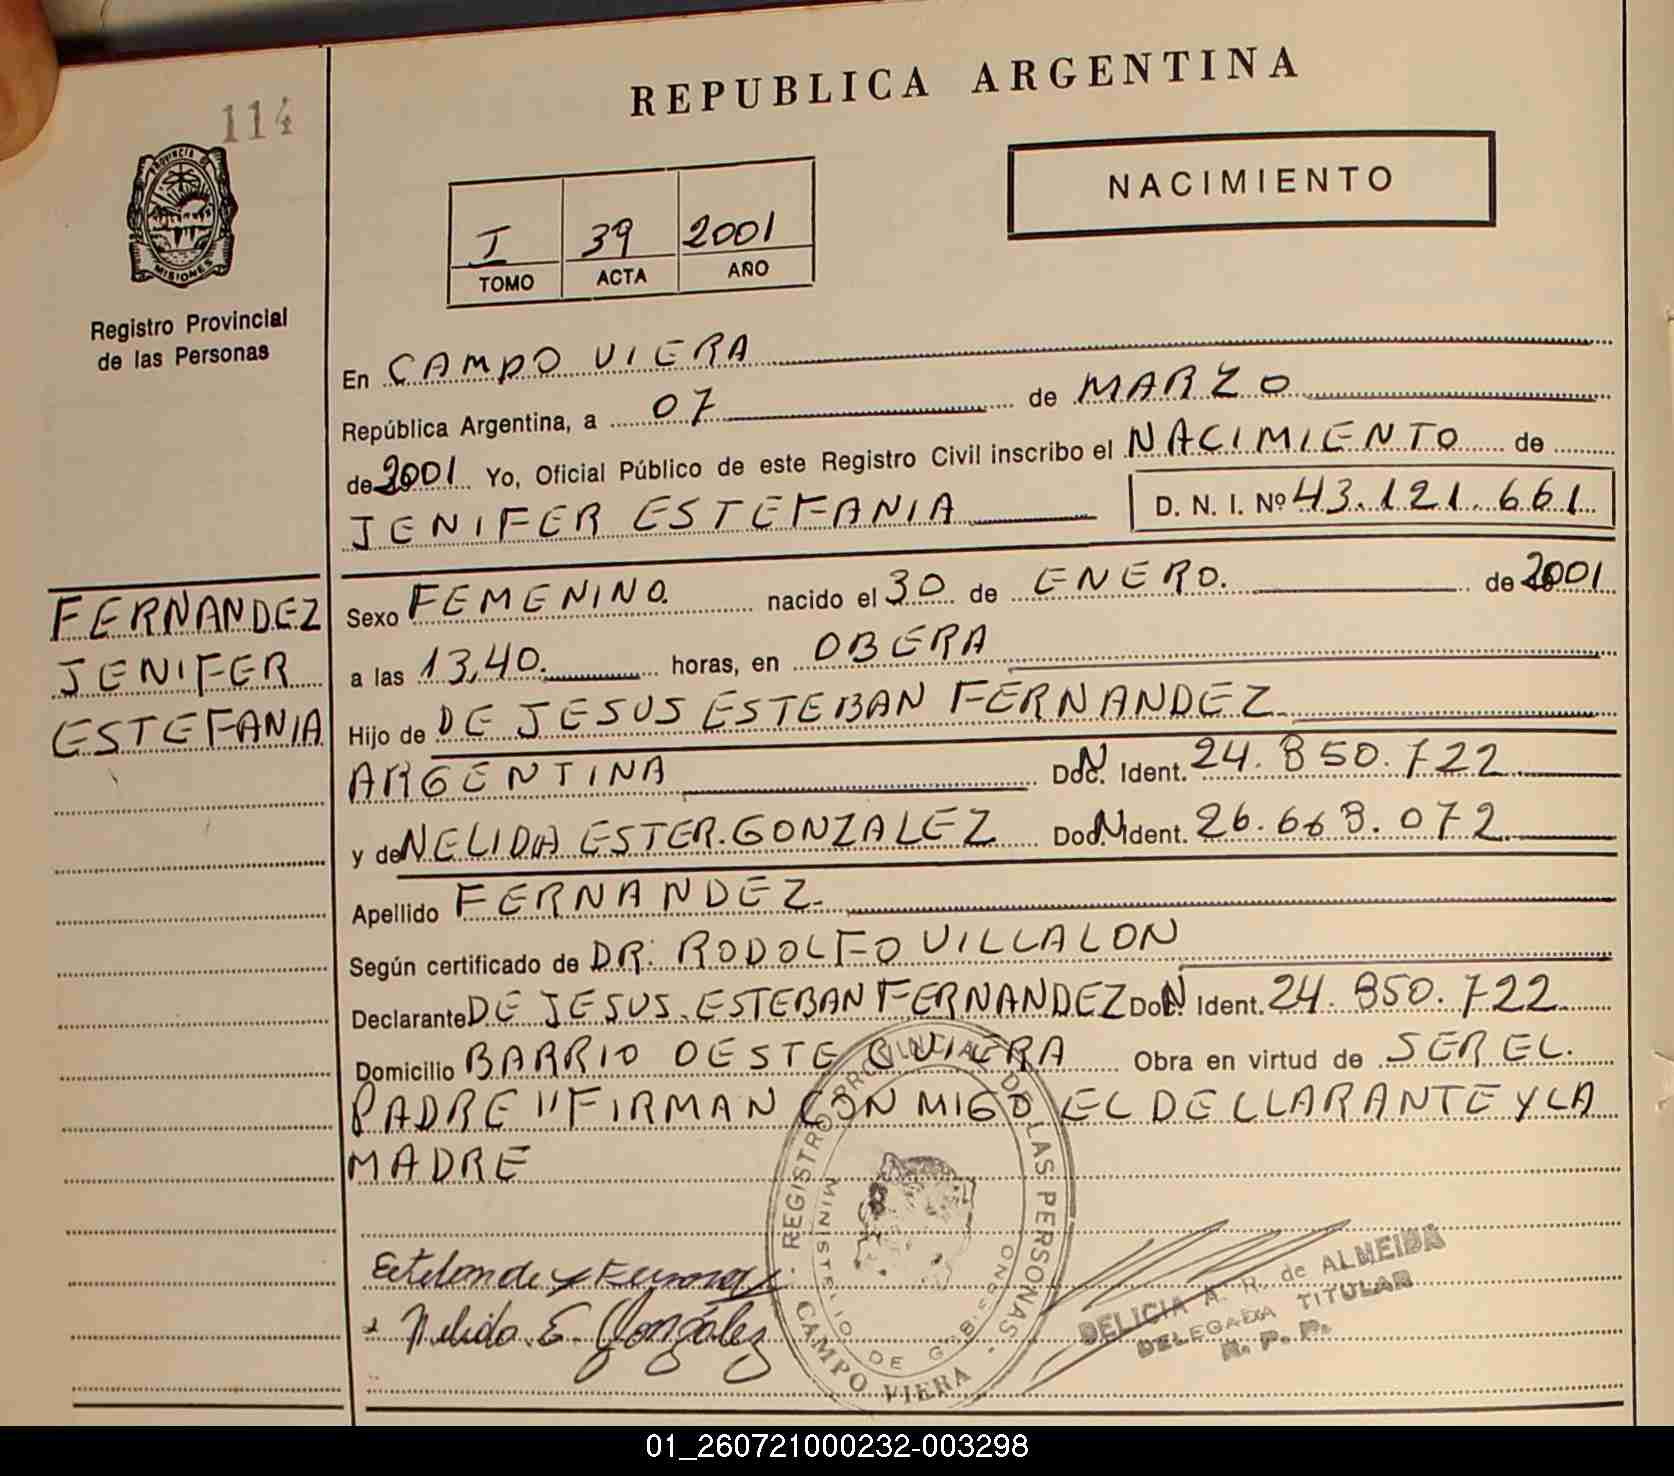 REPUBLICA ARGENTINA
114
PROVINCIA DE
MISIONES
NACIMIENTO
I 39 2001
TOMO ACTA AÑO
Registro Provincial
de las Personas
En CAMPO VIERA
República Argentina, a 07 de MARZO
de 2001 Yo, Oficial Público de este Registro Civil inscribo el NACIMIENTO de
JENIFER ESTEFANIA D. N. I. Nº 43.121.661
FERNANDEZ
JENIFER
ESTEFANIA
Sexo FEMENINO. nacido el 30 de ENERO. de 2001
a las 13,40. horas, en OBERA
Hijo de DE JESUS ESTEBAN FERNANDEZ
ARGENTINA Doc. N Ident. 24.850.722
y de NELIDA ESTER.GONZALEZ Doc. N Ident. 26.668.072
Apellido FERNANDEZ.
Según certificado de DR: RODOLFO VILLALON
Declarante DE JESUS.ESTEBAN FERNANDEZ Doc. N Ident. 24.850.722
Domicilio BARRIO OESTE C VIERA Obra en virtud de SER EL.
PADRE "FIRMAN CON MIGO EL DECLLARANTE Y LA
MADRE
Nelida E. González
- REGISTRO PROVINCIAL DE LAS PERSONAS -
MINISTERIO DE GOBIERNO
CAMPO VIERA
DELICIA A. R. de ALMEIDA
DELEGADA TITULAR
R. P. P.
01_260721000232-003298